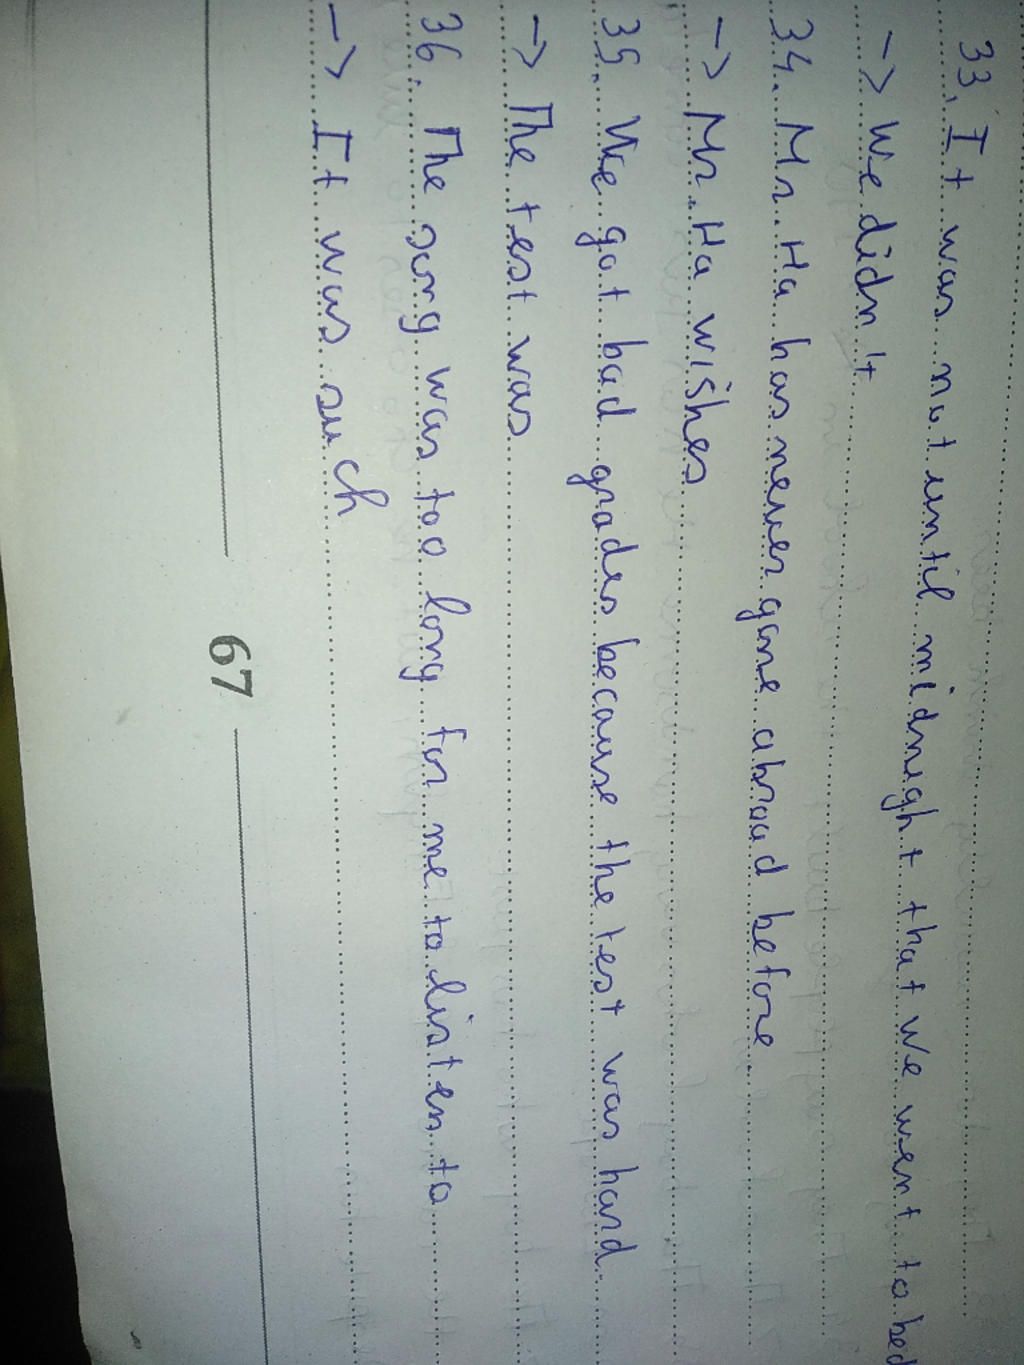 33. It was not until midnight that we went to bed
-> We didn't
34. Mr. Ha has never gone abroad before.
-> Mr. Ha wishes
35. We got bad grades because the test was hard.
-> The test was
36. The song was too long for me to listen to
-> It was such
67